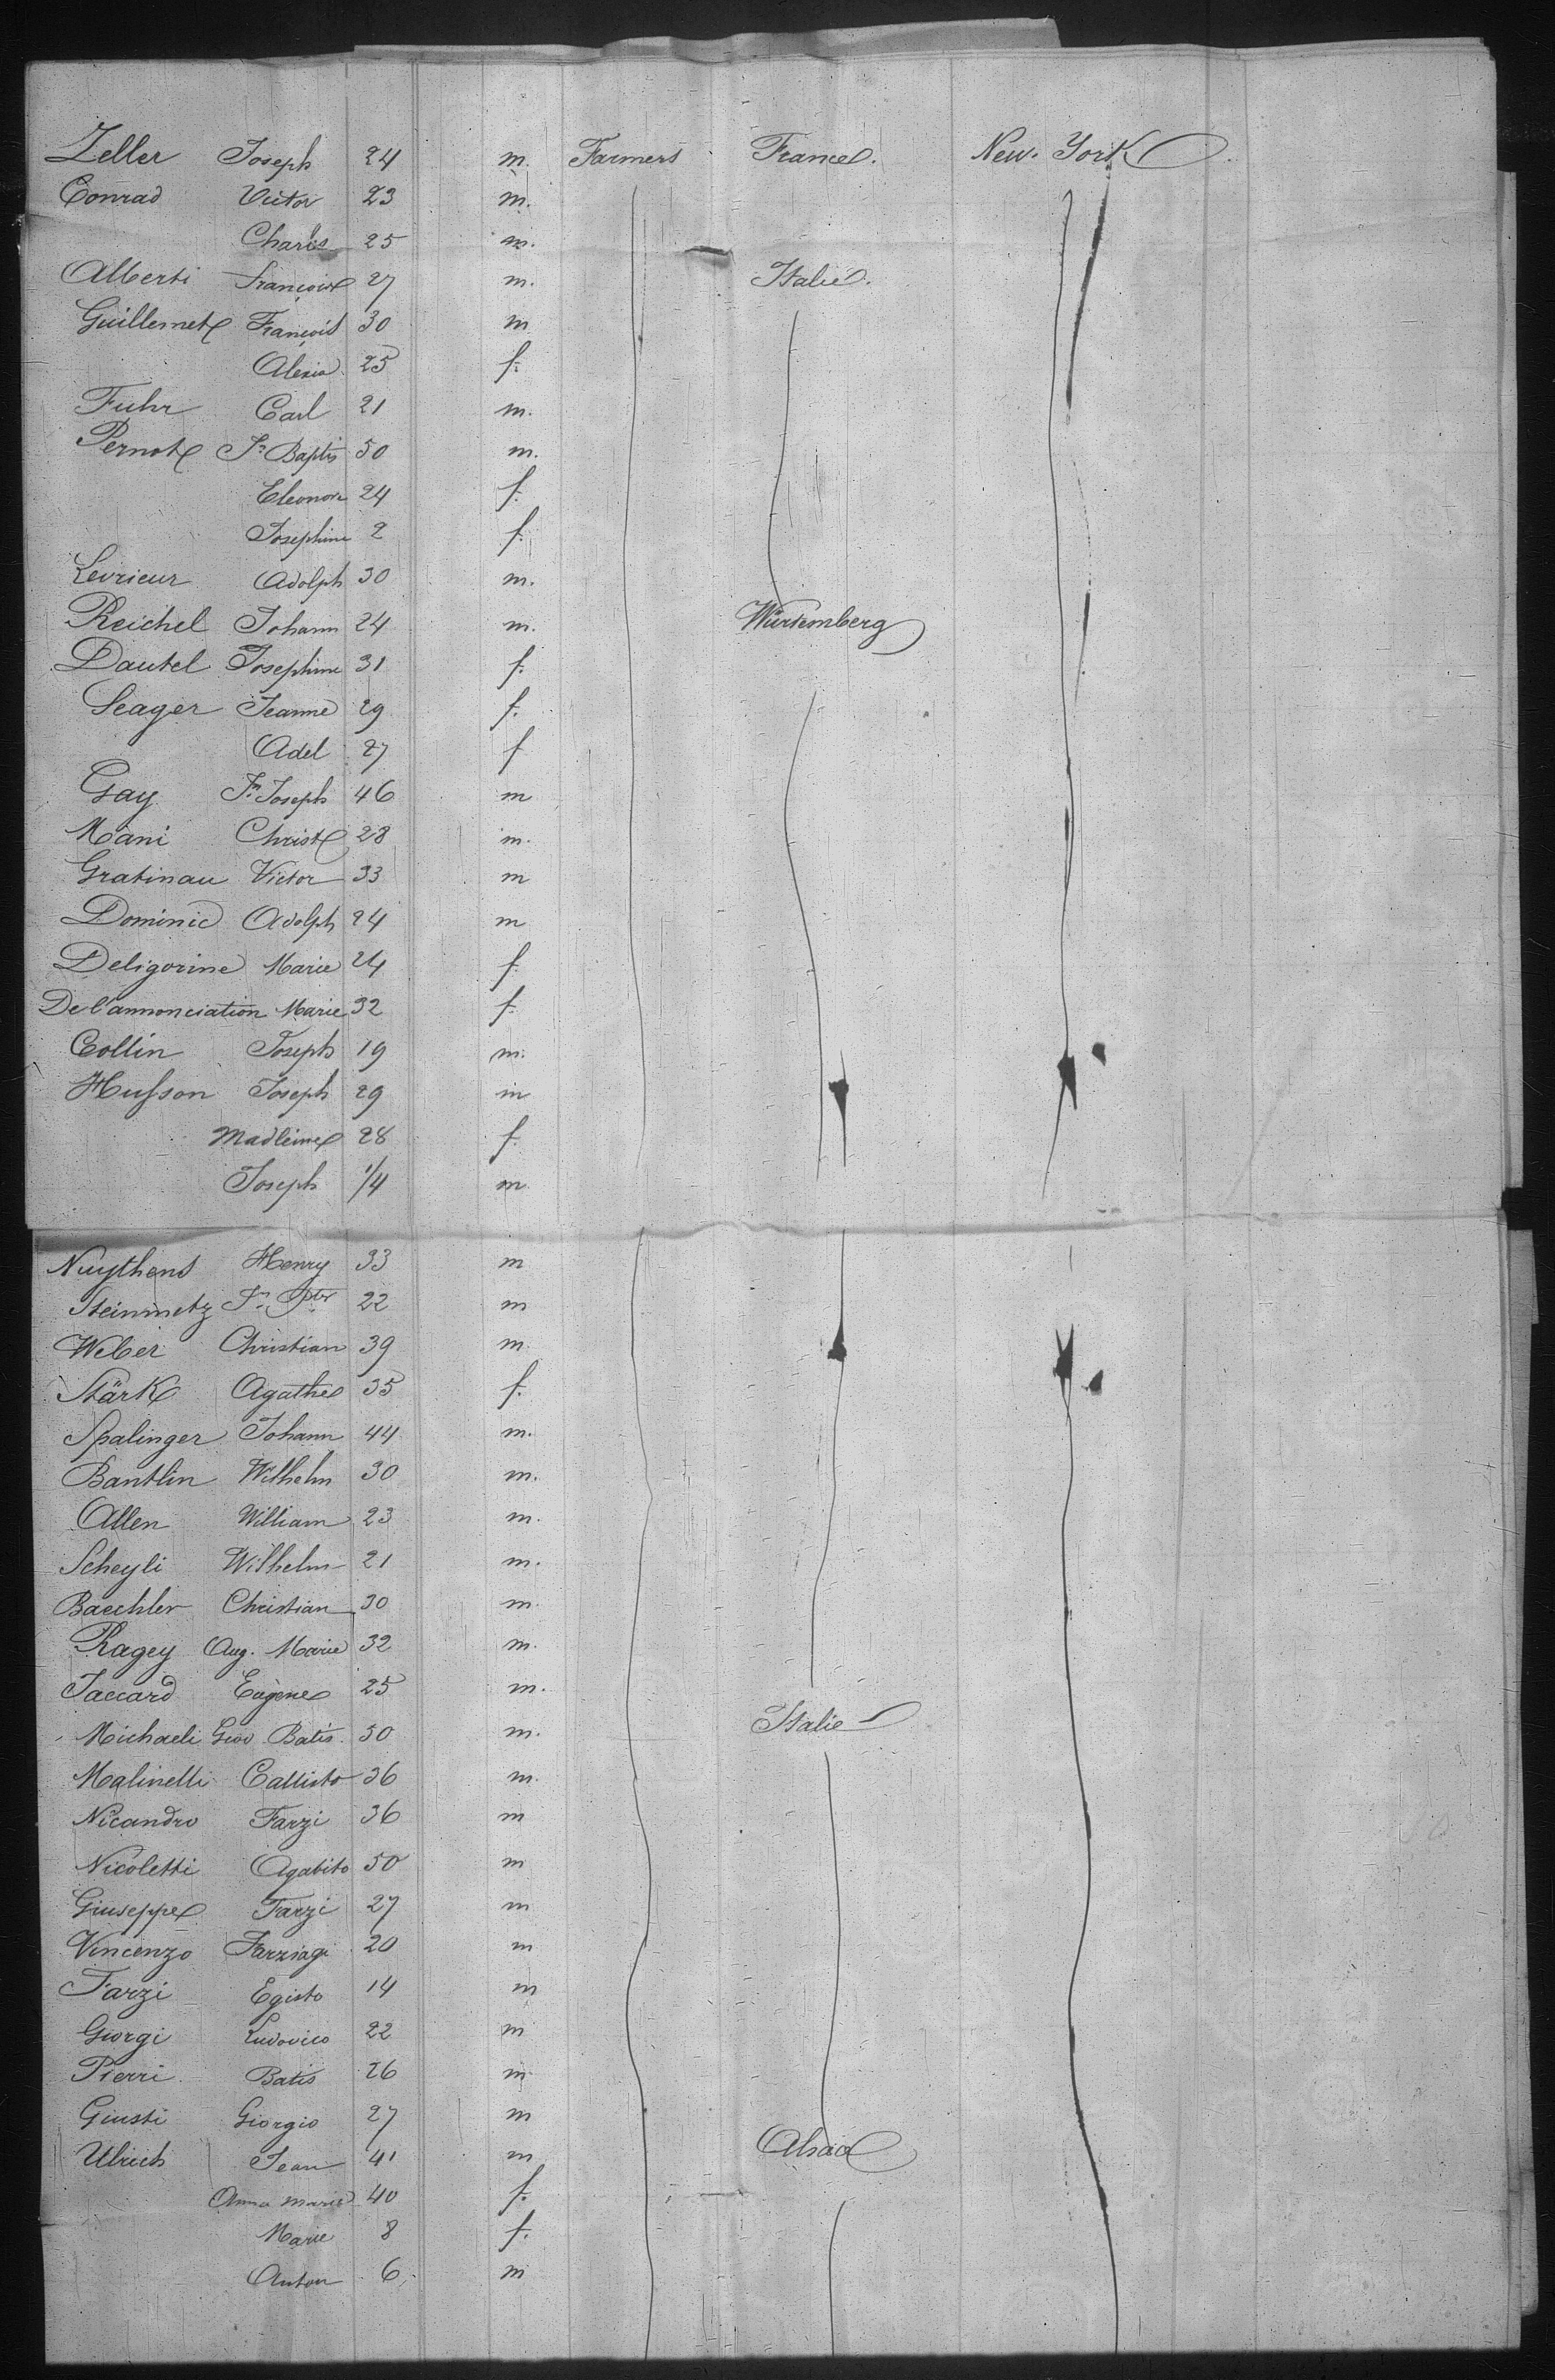 Zeller Joseph 24 m. Farmers France. New-York
Conrad Victor 23 m.
Charles 25 m.
Alberti François 27 m. Italie.
Guillemet François 30 m
Alexia 25 f.
Fuhr Carl 21 m.
Pernot Jn Baptis 50 m.
Eleonore 24 f.
Josephine 2 f.
Levrieur Adolph 30 m.
Reichel Johann 24 m. Würtemberg
Dautel Josephine 31 f.
Seager Jeanne 29 f.
Adel 27 f
Gay Fr. Joseph 46 m
Mani Christ 28 m.
Gratinau Victor 33 m
Dominic Adolph 24 m
Deligorine Marie 24 f
De l'annonciation Marie 32 f.
Collin Joseph 19 m.
Husson Joseph 29 m
Madleine 28 f.
Joseph 1/4 m
Nuythens Henry 33 m
Steinmetz Jn 22 m
Weber Christian 39 m
Stärk Agathe 35 f.
Spalinger Johann 44 m.
Bantlin Wilhelm 30 m.
Allen William 23 m.
Scheyli Wilhelm 21 m.
Baechler Christian 30 m.
Ragey Aug. Marie 32 m.
Jaccard Eugene 25 m.
Michaeli Giov. Batis. 50 m. Italie
Malinelli Callisto 36 m.
Nicandro Farzi 36 m
Nicoletti Agabito 50 m
Giuseppe Farzi 27 m
Vincenzo Farziagi 20 m
Farzi Egisto 14 m
Giorgi Ludovico 22 m
Pierri Batis 26 m
Giusti Giorgio 27 m
Ulrich Jean 41 m Alsace
Anna Marie 40 f.
Marie 8 f.
Anton 6 m